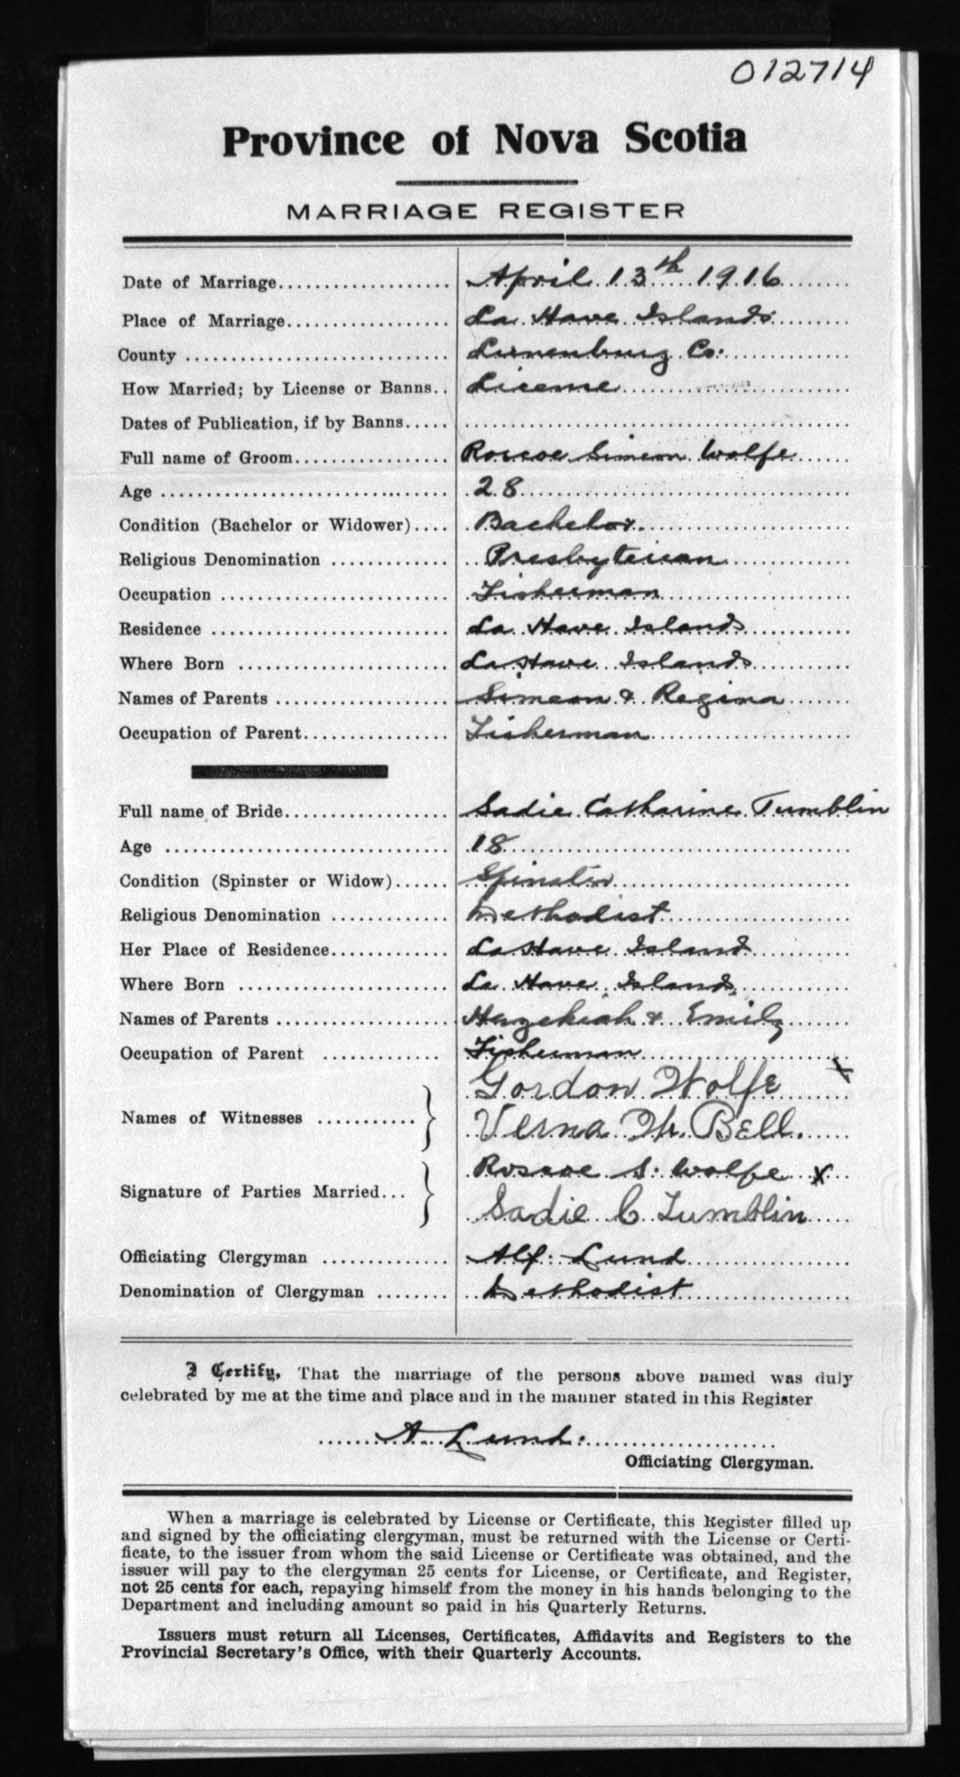 012714
Province of Nova Scotia
MARRIAGE REGISTER
Date of Marriage................... April 13th 1916
Place of Marriage.................. La Have Islands
County ............................. Lunenburg Co.
How Married; by License or Banns.. License
Dates of Publication, if by Banns.....
Full name of Groom................. Roscoe Simeon Wolfe
Age ................................ 28
Condition (Bachelor or Widower).... Bachelor
Religious Denomination ............. Presbyterian
Occupation ......................... Fisherman
Residence .......................... La Have Islands
Where Born ....................... La Have Islands
Names of Parents ................... Simeon & Regina
Occupation of Parent................ Fisherman
Full name of Bride.................. Sadie Catharine Tumblin
Age ............................... 18
Condition (Spinster or Widow)...... Spinster
Religious Denomination ............. Methodist
Her Place of Residence............. La Have Island
Where Born ....................... La Have Islands
Names of Parents ................... Hezekiah & Emily
Occupation of Parent ............. Fisherman
Gordon Wolfe x
Names of Witnesses ...........
Verna M. Bell.
Roscoe S. Wolfe x
Signature of Parties Married...
Sadie C Tumblin
Officiating Clergyman .............. Alf. Lund
Denomination of Clergyman ........ Methodist
I Certify, That the marriage of the persons above named was duly
celebrated by me at the time and place and in the manner stated in this Register
A Lund.
Officiating Clergyman.
When a marriage is celebrated by License or Certificate, this Register filled up
and signed by the officiating clergyman, must be returned with the License or Certi-
ficate, to the issuer from whom the said License or Certificate was obtained, and the
issuer will pay to the clergyman 25 cents for License, or Certificate, and Register,
not 25 cents for each, repaying himself from the money in his hands belonging to the
Department and including amount so paid in his Quarterly Returns.
Issuers must return all Licenses, Certificates, Affidavits and Registers to the
Provincial Secretary's Office, with their Quarterly Accounts.